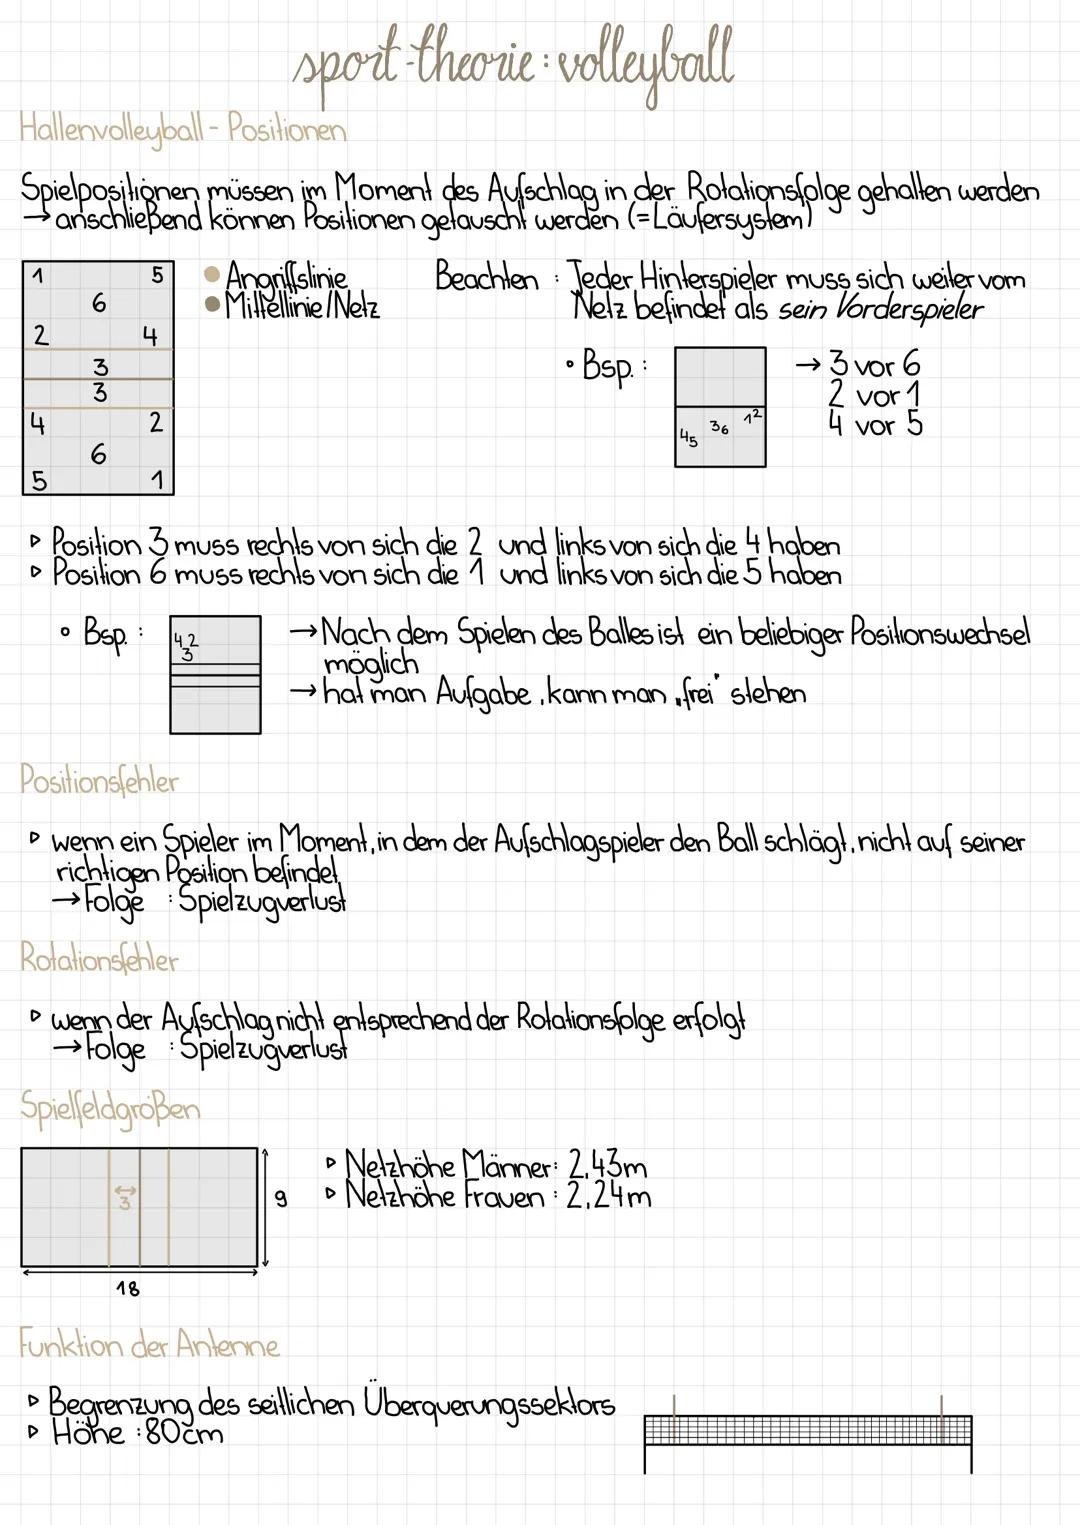 sport-theorie: volleyball
Hallenvolleyball - Positionen
Spielpositionen müssen im Moment des Aufschlag in der Rotationsfolge gehalten werden
→ anschließend können Positionen getauscht werden (=Läufersystem)
1 5
6
2 4
3
3
4 2
6
5 1
Angriffslinie
Mittellinie/Netz
Beachten : Jeder Hinterspieler muss sich weiter vom
Netz befindet als sein Vorderspieler
• Bsp. :
1 2
3 6
4 5
→ 3 vor 6
2 vor 1
4 vor 5
▹ Position 3 muss rechts von sich die 2 und links von sich die 4 haben
▹ Position 6 muss rechts von sich die 1 und links von sich die 5 haben
∘ Bsp. :
4 2
3
→ Nach dem Spielen des Balles ist ein beliebiger Positionswechsel
möglich
→ hat man Aufgabe, kann man „frei" stehen
Positionsfehler
▹ wenn ein Spieler im Moment, in dem der Aufschlagspieler den Ball schlägt, nicht auf seiner
richtigen Position befindet
→ Folge : Spielzugverlust
Rotationsfehler
▹ wenn der Aufschlag nicht entsprechend der Rotationsfolge erfolgt
→ Folge : Spielzugverlust
Spielfeldgrößen
3
9
18
▹ Netzhöhe Männer: 2,43m
▹ Netzhöhe Frauen : 2,24m
Funktion der Antenne
▹ Begrenzung des seitlichen Überquerungssektors
▹ Höhe : 80cm